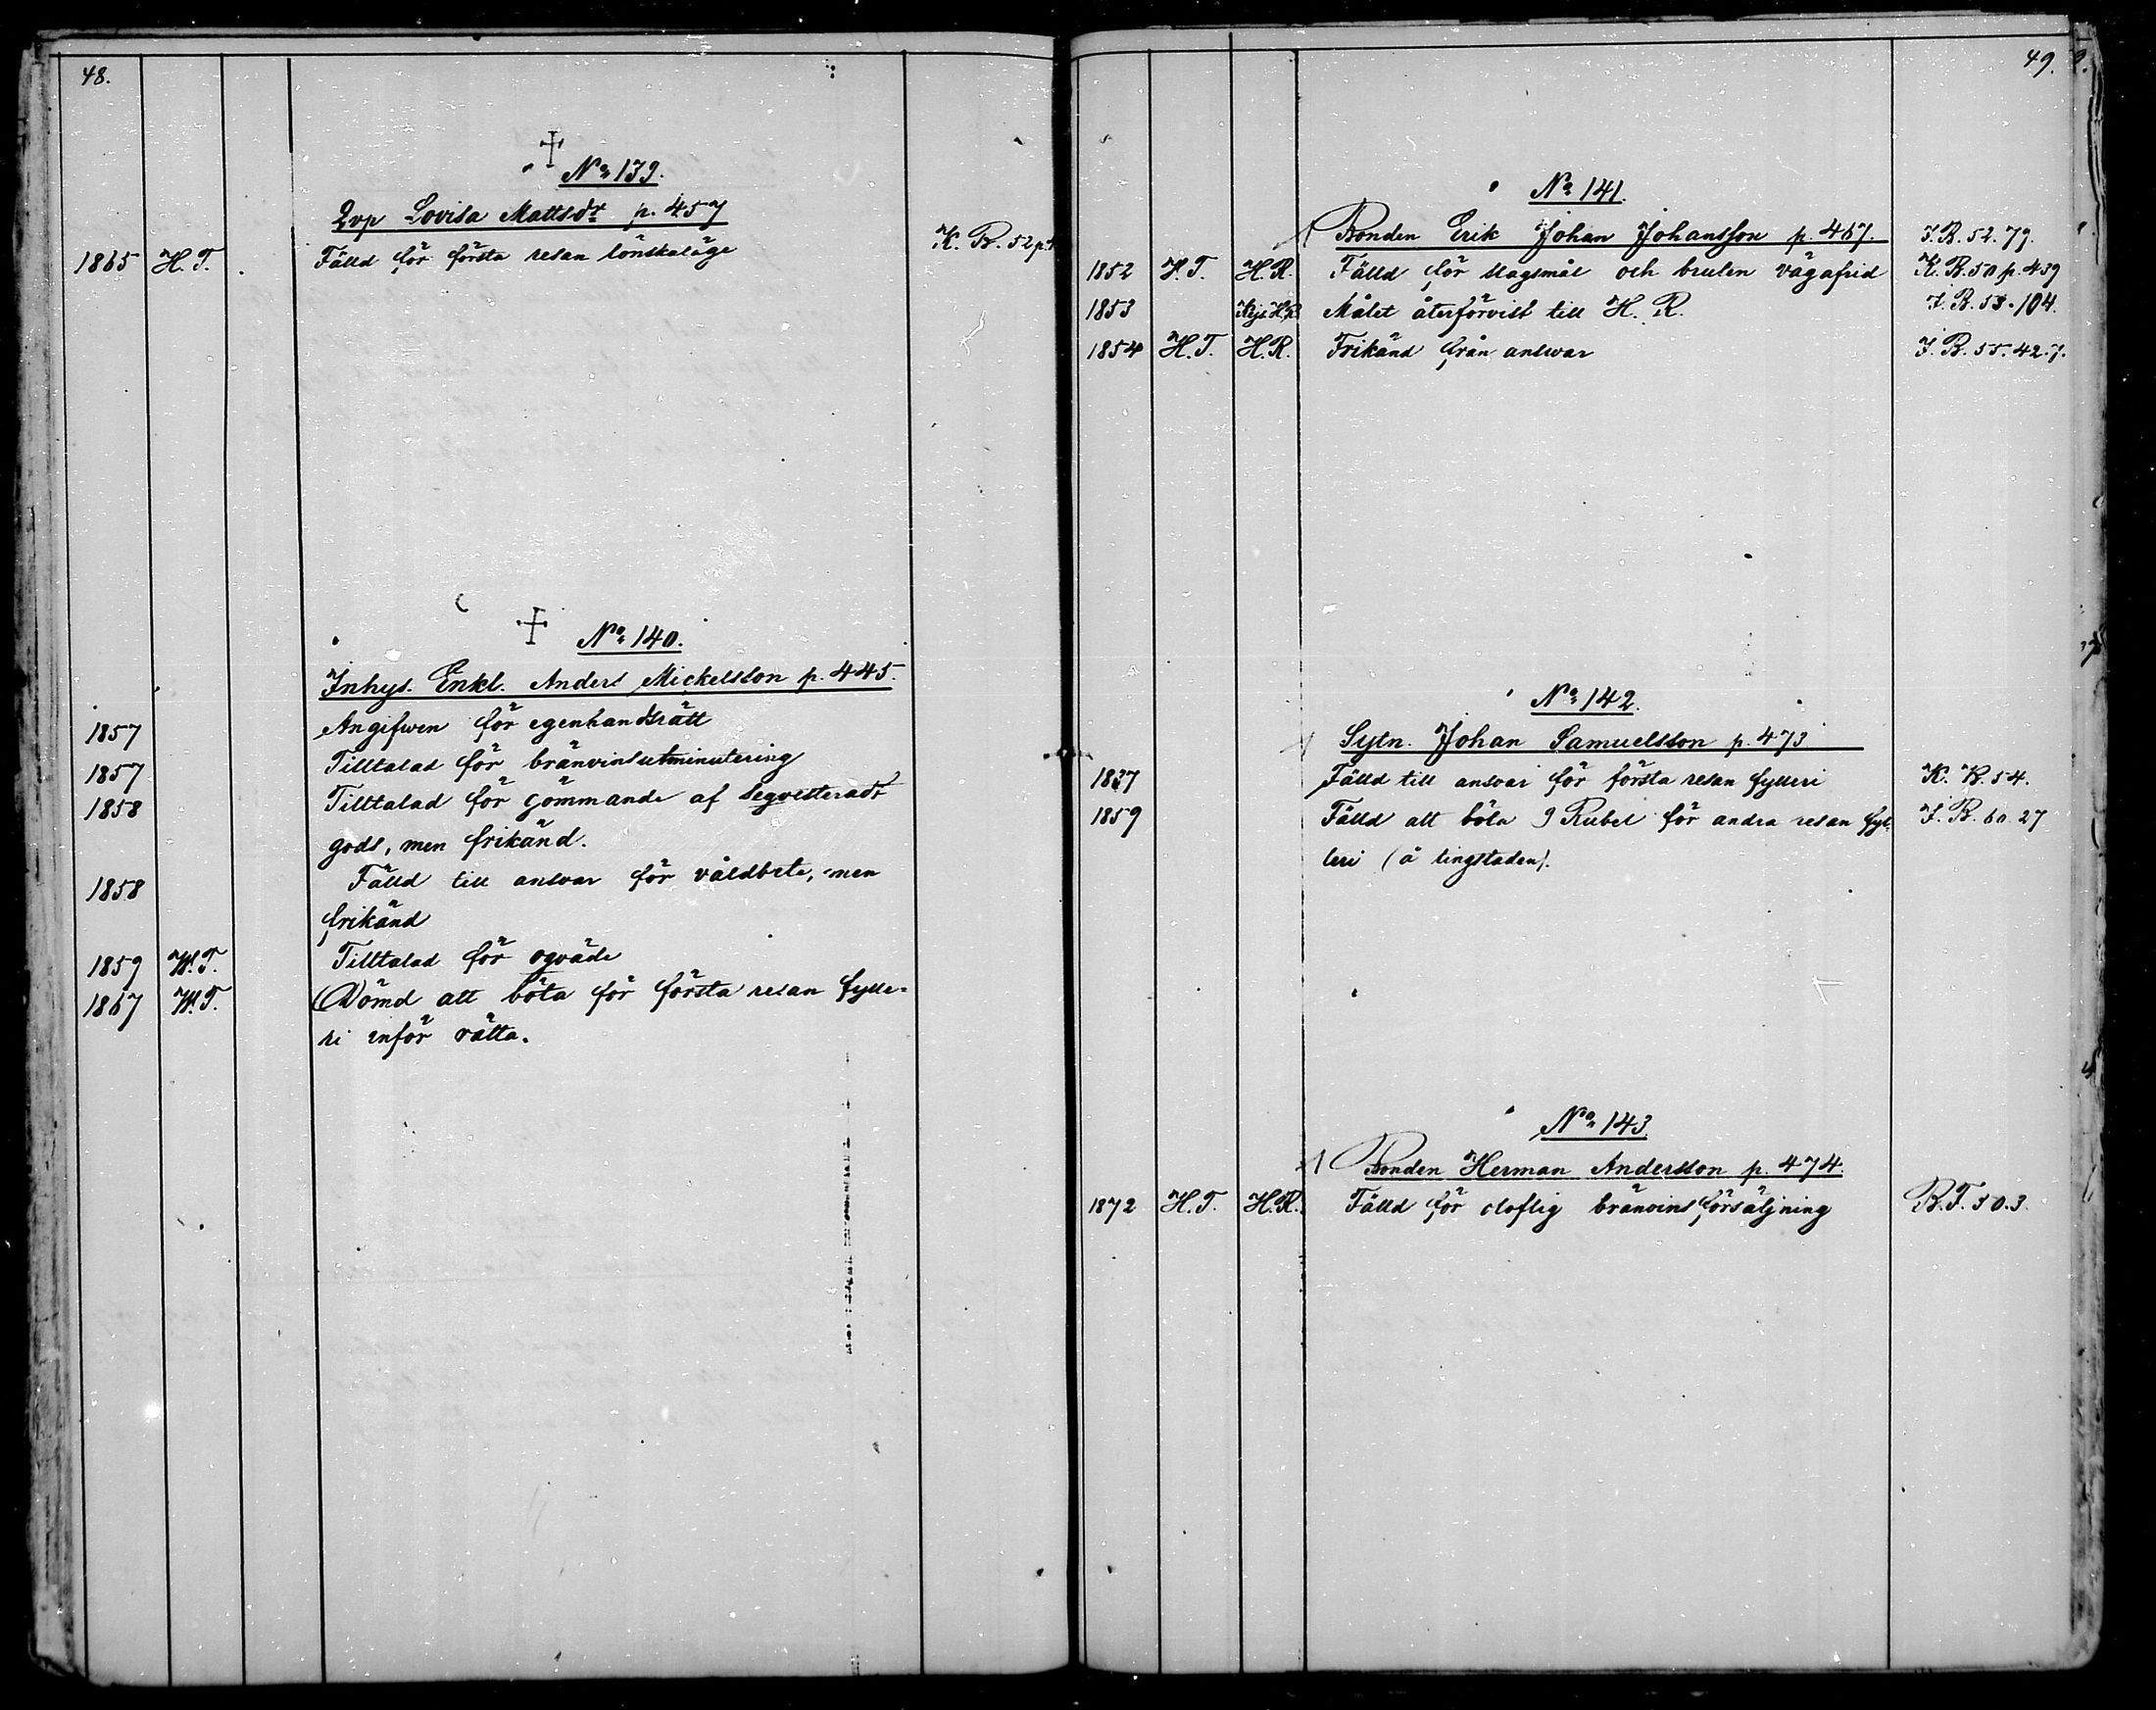 48.
Nº 139.
Qvp Lovisa Mattsdr p. 457
1865 H. T. Fälld för första resan lönskaläge K. B. 52 p.
Nº 140.
Inhys. Enkl. Anders Mickelsson p. 445.
1857 Angifwen för egenhandsrätt
1857 Tilltalad för bränvinsutminutering
1858 Tilltalad för gömmande af seqvesteradt
gods, men frikänd.
1858 Fälld till ansvar för våldbete, men
frikänd
1859 W. T. Tilltalad för oqväde
1867 W. T. Dömd att böta för första resan fylle-
ri inför rätta.
49.
Nº 141.
Bonden Erik Johan Johansson p. 467. I. B. 52. 79.
1852 H. T. H. R. Fälld för slagsmål och bruten vägafrid K. B. 50 p. 459
1853 Målet återförvist till H. R. I. B. 53. 104.
1854 H. T. H. R. Frikänd från answar I. B. 55. 42. 7.
Nº 142.
Sytn. Johan Samuelsson p. 473
1837 Fälld till ansvar för första resan fylleri K. B. 54.
1859 Fälld att böta 9 Rubel för andra resan fyl- I. B. 60 27
leri (å tingstaden).
Nº 143.
Bonden Herman Andersson p. 474.
1872 H. T. H. R. Fälld för oloflig bränvins försäljning B. T. 50. 3.